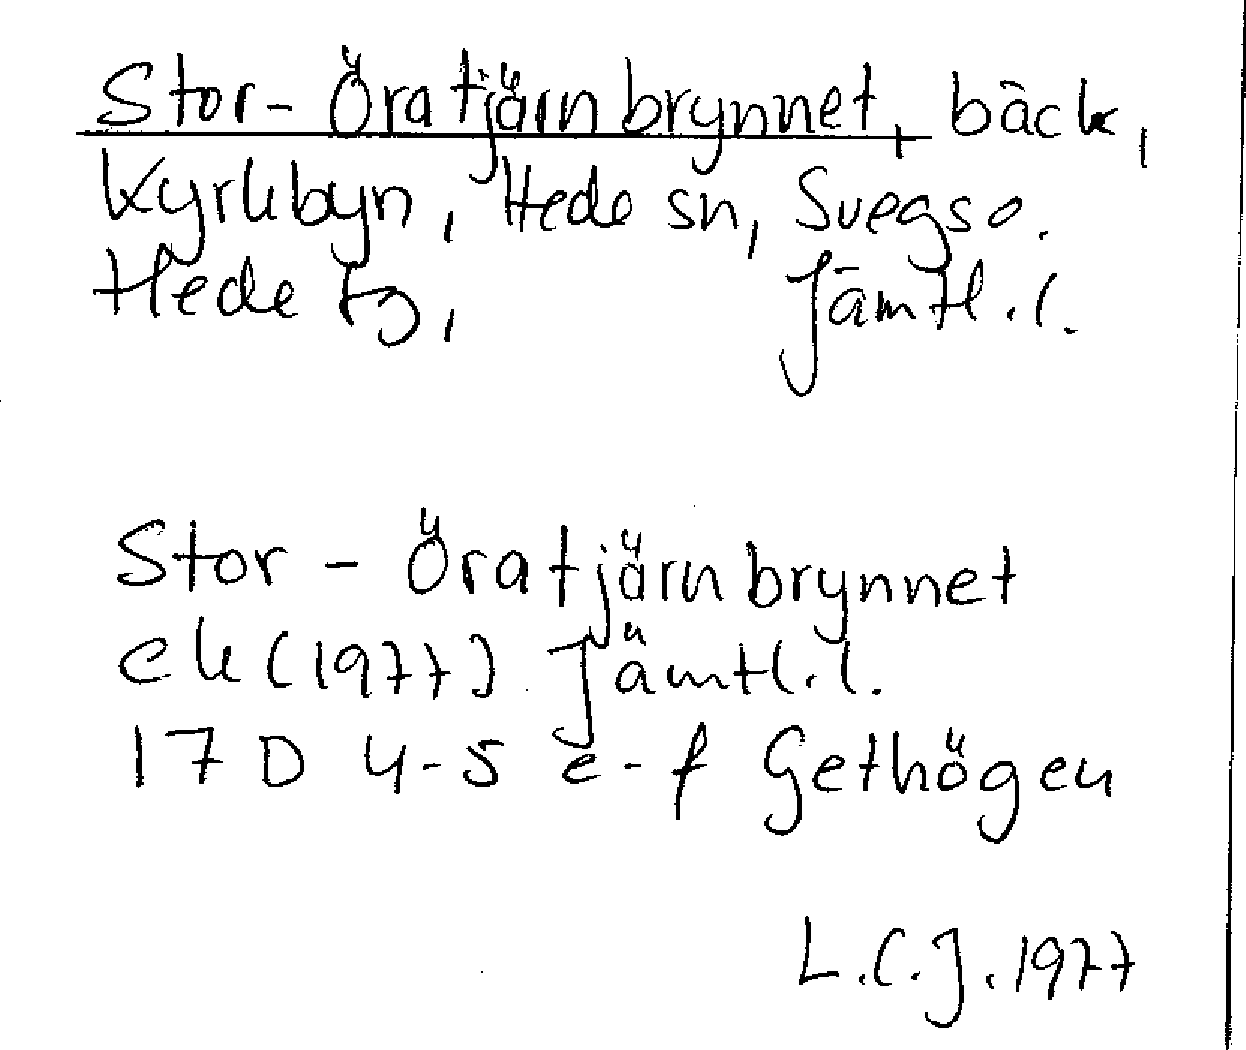 Stor-Öratjärnbrynnet, bäck,
Kyrkbyn, Hede sn, Svegs o.
Hede tg, Jämtl.l.
Stor-Öratjärnbrynnet
ek (1977) Jämtl.l.
17 D 4-5 e-f Gethögen
L.C.J. 1977